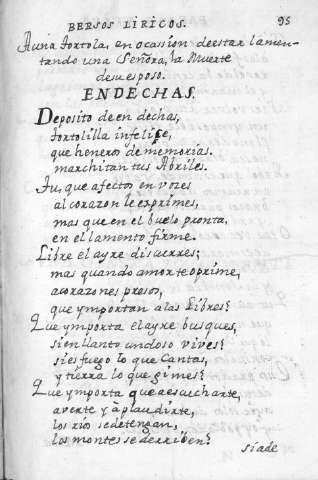 BERSOS LIRICOS.
95
A una tortola, en ocassion de estar lamen-
tando una Señora, la Muerte
de su esposo.
ENDECHAS.
Deposito de en dechas,
tortolilla infelice,
que heneros de memorias.
marchitan tus Abriles.
Tu, que afectos en vozes
al corazon le exprimes,
mas que en el buelo pronta,
en el lamento firme.
Libre el ayre discurres;
mas quando amor te oprime,
a corazones presos,
que ymportan alas Libres?
Que ymporta el ayre busques,
si en llanto undoso vives?
si es fuego lo que Cantas,
y tierra lo que gimes?
Que ymporta que a escucharte,
a verte y à plaudirte,
los rios se detengan,
los montes se derriben?
si a de